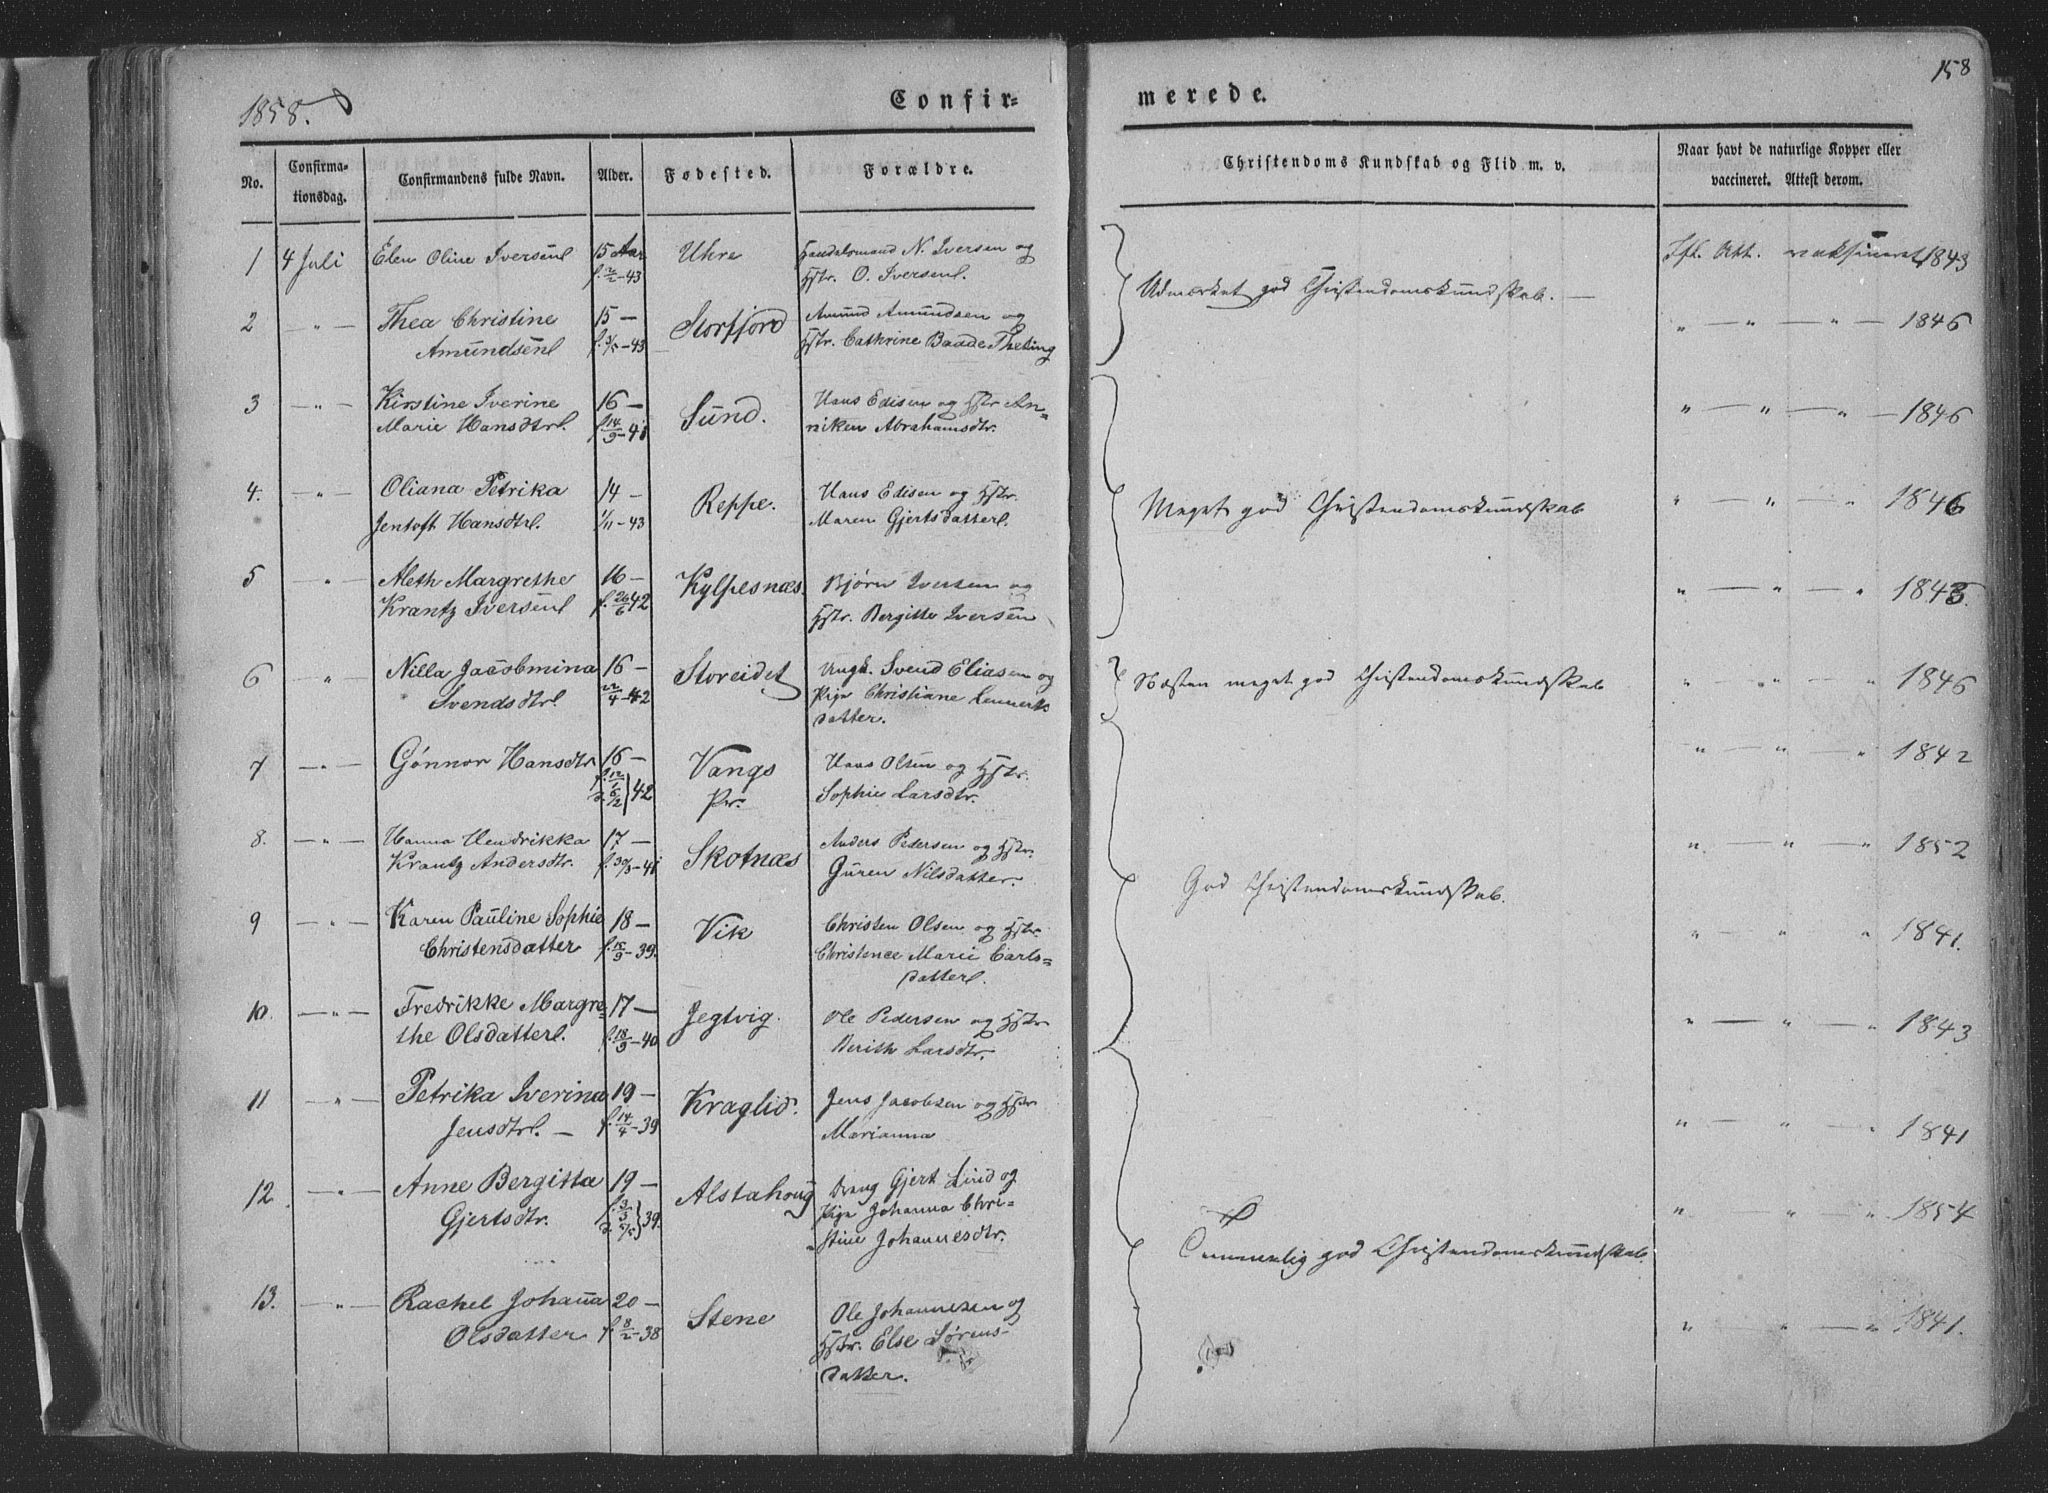 1858.
Confir=
merede.
158
No.
Confirma-
tionsdag.
Confirmandens fulde Navn.
Alder.
Fødested.
Forældre.
Christendoms Kundskab og Flid m. v.
Naar havt de naturlige Kopper eller
vaccineret. Attest derom.
1 4 Juli Elen Oline Iversen 15 Aar Uhre Handelsmand N. Iversen og
f. 2/2-43 Hstr. O. Iversen.
vaksineret 1843
Udmærket god Christendomskundskab. —
2 — " — Thea Christine 15 — Storfjord Amund Amundsen og
Amundsen f. 3/5-43 Hstr. Cathrine Baade Theting
" — " — " — 1846
3 — " — Kirstine Iverine 16 — Sund. Hans Edisen og Hstr An=
Marie Hansdtr. f. 14/9-41 niken Abrahamsdtr.
" — " — " — 1846
4. — " — Oliana Petrika 14 — Reppe. Hans Edisen og Hstr.
Jentoft Hansdtr. 1/11-43 Maren Gjertsdatter.
Meget god Christendomskundskab
" — " — " 1846
5 — " — Aleth Margrethe 16 — Kylpesnæs. Bjørn Iversen og
Krantz Iversen f. 26/6 42 Hstr. Bergitte Iversen
" — " — "
6 — " — Nilla Jacobmina 16 — Storeidet Ungk. Svend Eliasen og
Svendsdtr 22/4-42 Pige Christiane Lennerts
datter.
Næsten meget god Christendomskundskab
" — " — " 1846
7 — " — Gønnor Hansdtr 16 — Vangs Hans Olsen og Hstr.
f. 12/1 d. 6/2 } 42 Pr. Sophie Larsdtr.
" — " — " 1842
8. — " — Hanna Hendrikka 17 — Skotnæs Anders Pedersen og Hstr.
Krantz Andersdtr. f. 30/3-41 Guren Nilsdatter.
" — " — " 1852
God Christendomskundskab.
9 — " — Karen Pauline Sophie 18 — Vik Christen Olsen og Hstr.
Christensdatter f. 15/9-39. Christence Marie Carls=
datter.
" — " — " 1841.
10. — " — Fredrikke Margre= 17 — Jegtvig. Ole Pedersen og Hstr
the Olsdatter. f. 18/9-40 Berith Larsdtr.
" — " — " 1843
11 — " — Petrika Iverina 19 — Kraglid. Jens Jacobsen og Hstr
Jensdtr. — f. 14/4-39 Marianna
" — " — " 1841
12. — " — Anne Bergitta 19 — Alstahoug Dreng Gjert Lind og
Gjertsdtr. f. 3/3 d. 5/5 } 39. Pige Johanna Chri=
stine Johannesdtr.
" — " — " 1854
Temmelig god Christendomskundskab.
13. — " — Rachel Johanna 20 — Stene Ole Johannesen og
Olsdatter f. 8/2-38 Hstr. Else Sørens-
datter.
" — " — " 1841.